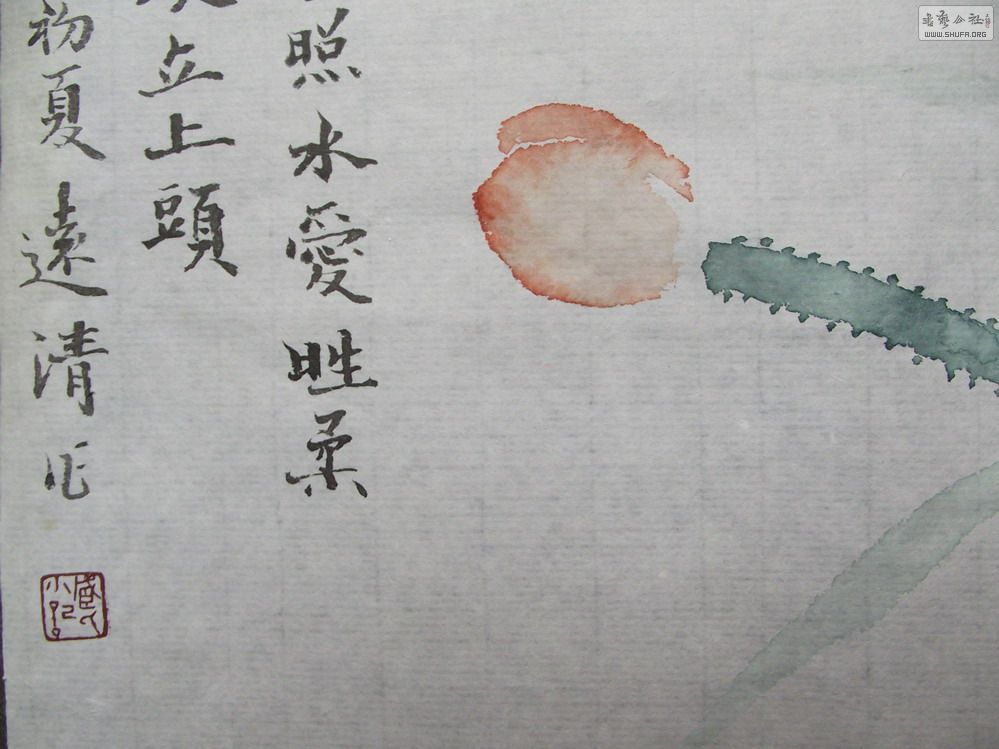 照水愛晴柔
立上頭
初夏遠清作
書藝公社
WWW.SHUFA.ORG